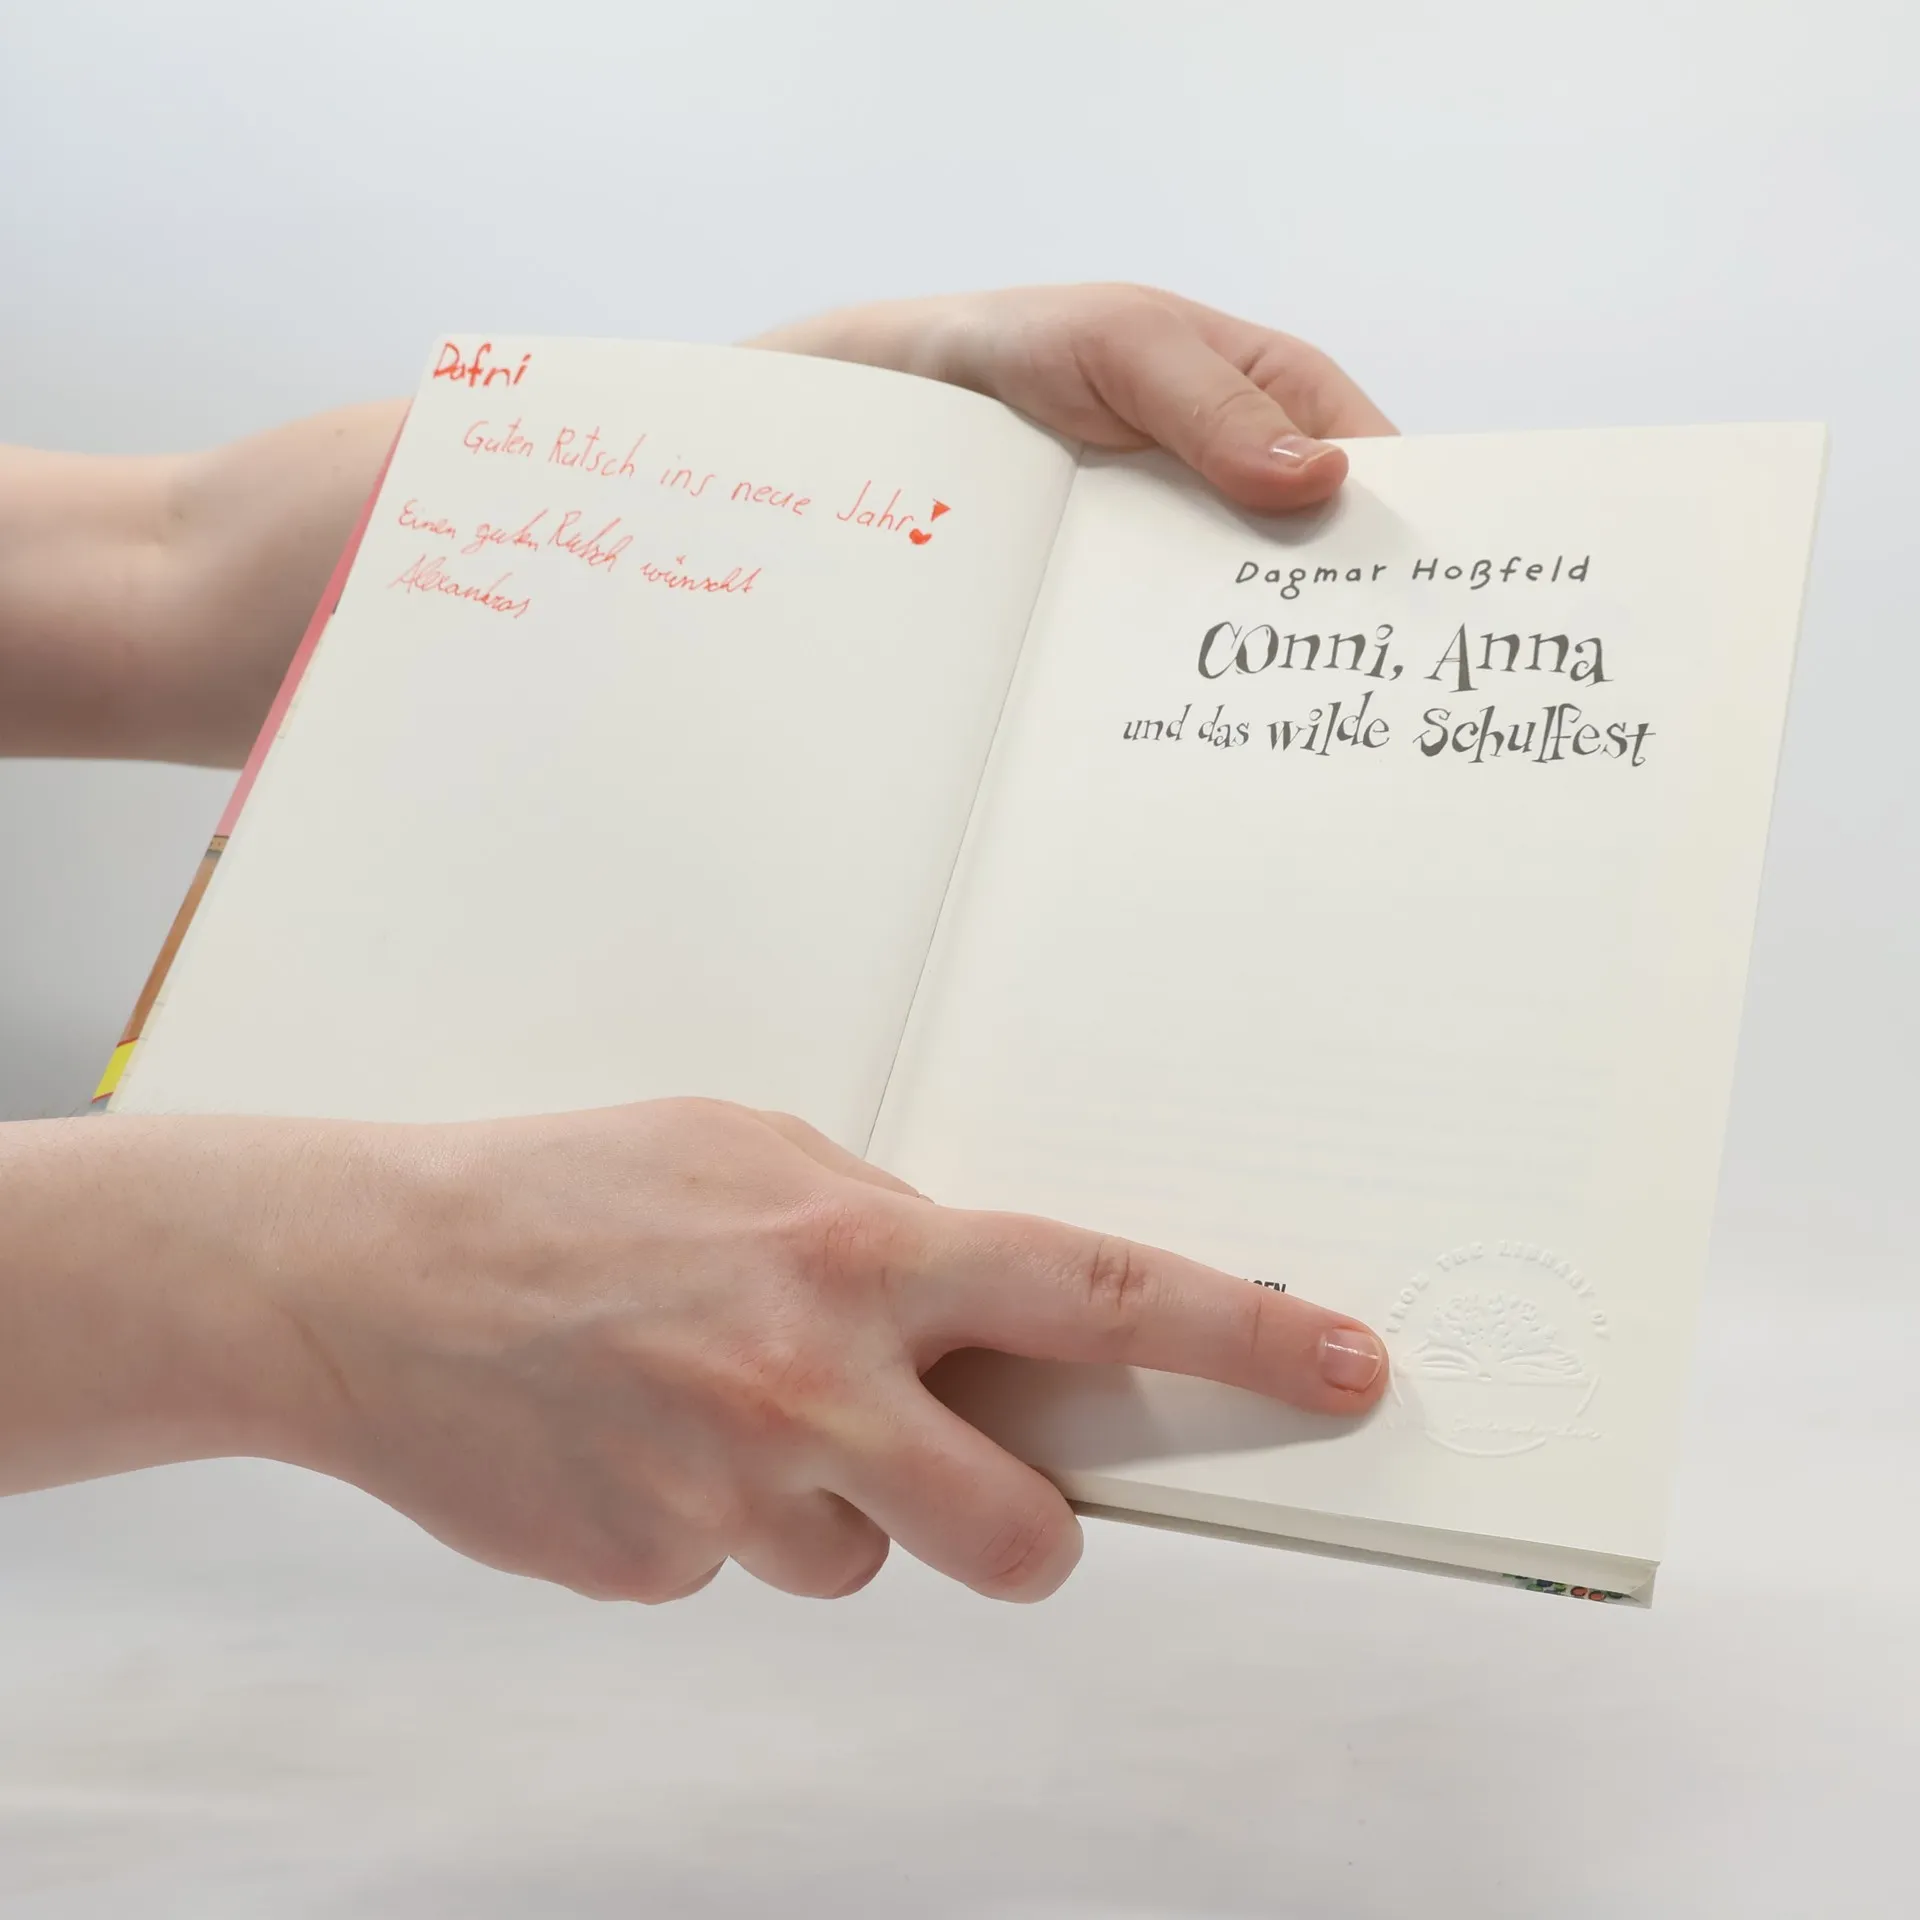 Dafni
Guten Rutsch ins neue Jahr!
Einen guten Rutsch wünscht
Alexandros
Dagmar Hoßfeld
Conni, Anna
und das wilde Schulfest
THE LIBRARY OF